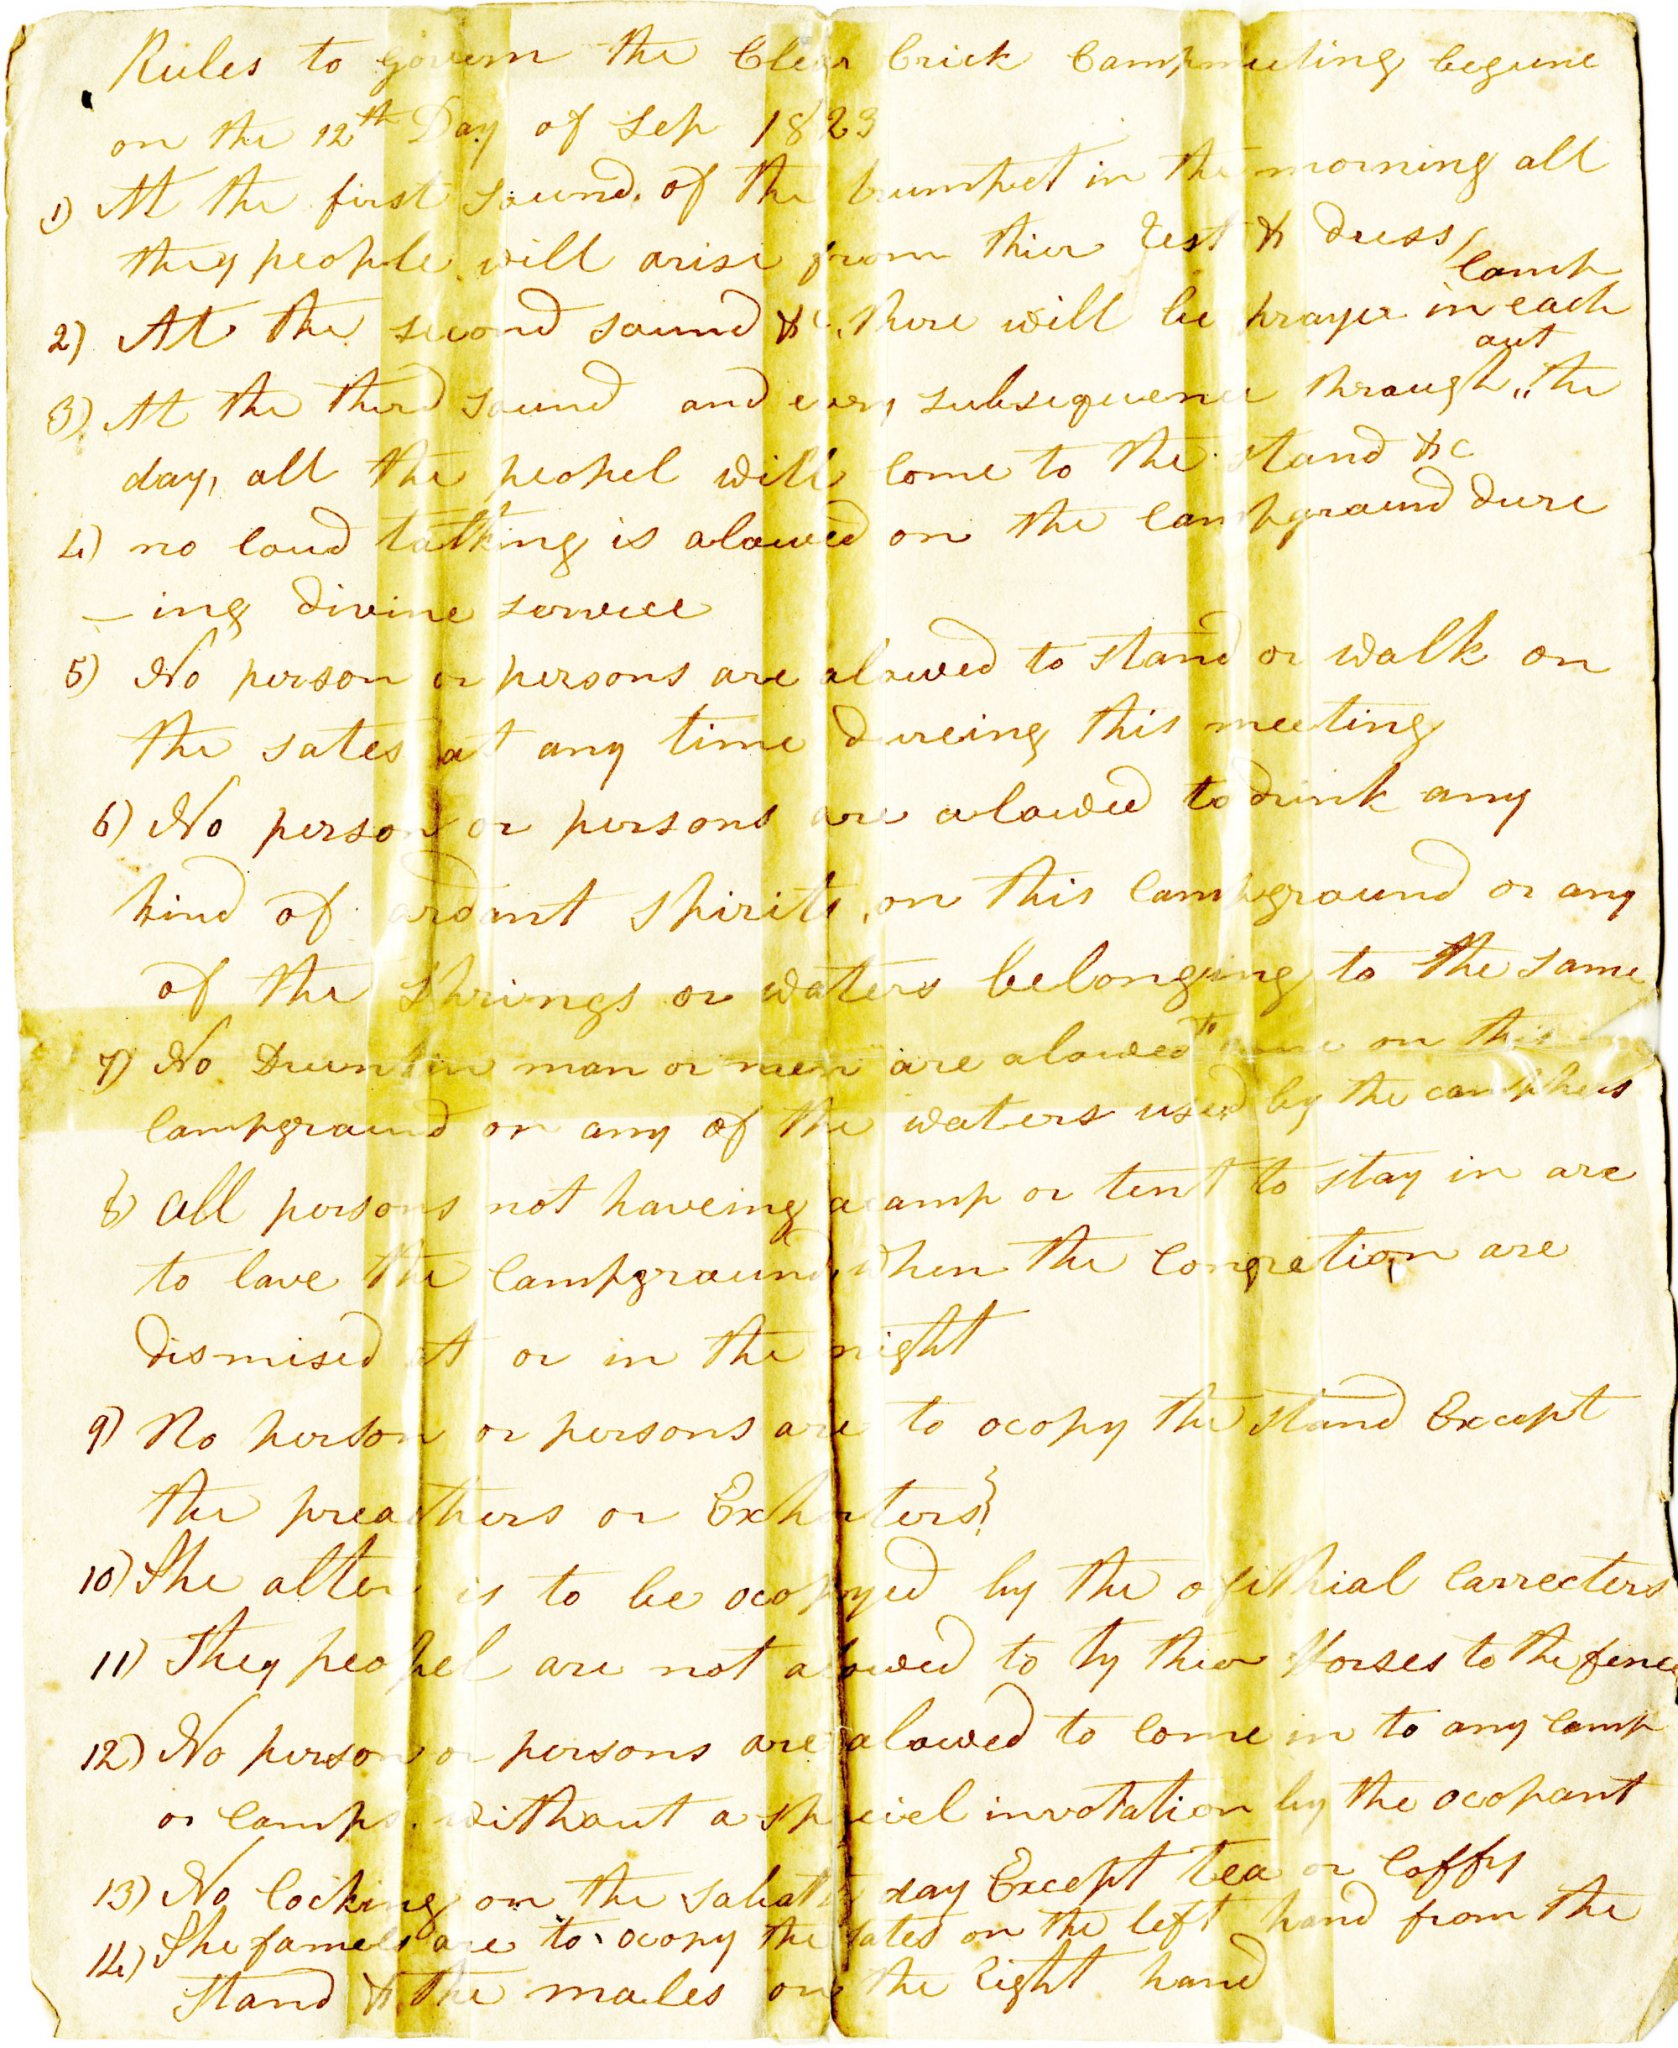 Rules to govern the Clear Crick Campmeeting begune
on the 12th Day of Sep 1823
1) At the first sound of the trumpet in the morning all
they people will arise from thier rest & dress
2) At the second sound &c. there will be prayer in each camp
3) At the third sound and every subsequence through out the
day, all the peopel will come to the stand &c
4) no loud talking is alowed on the campground dure
-ing divine servict
5) No person or persons are alowed to stand or walk on
the sates at any time dureing this meeting
6) No person or persons are alowed to drink any
kind of ardant spirits on this campground or any
of the springs or waters belonging to the same
7) No Drunken man or men are alowed to come on this
campground or any of the waters used by the campers
8) All persons not haveing a camp or tent to stay in are
to lave the campground when the congretion are
dismised at or in the night
9) No person or persons are to ocopy the stand Except
the preachers or Exhorters}
10) The alter is to be ocopyed by the ofithial carrecters
11) They peopel are not alowed to ty thier Horses to the fence
12) No person or persons are alowed to come in to any camp
or camps without a speciel invotation by the ocopant
13) No cocking on the sabath day Except tea or coffy
14) The famels are to ocopy the sates on the left hand from the
stand & the males on the right hand